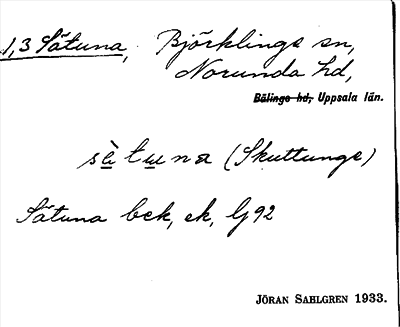 1,3 Sätuna, Björklinge sn,
Norunda hd,
Bälinge hd, Uppsala län.
sè̱tu̱na (Skuttunge)
Sätuna bck, ek, G 92
JÖRAN SAHLGREN 1933.